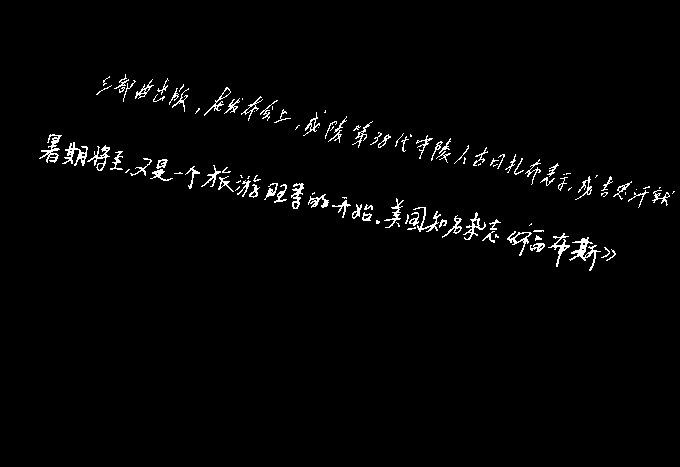 三部曲出版，在发布会上，成陵第38代守陵人古日扎布表示，成吉思汗就
暑期将至，又是一个旅游旺季的开始。美国知名杂志《福布斯》